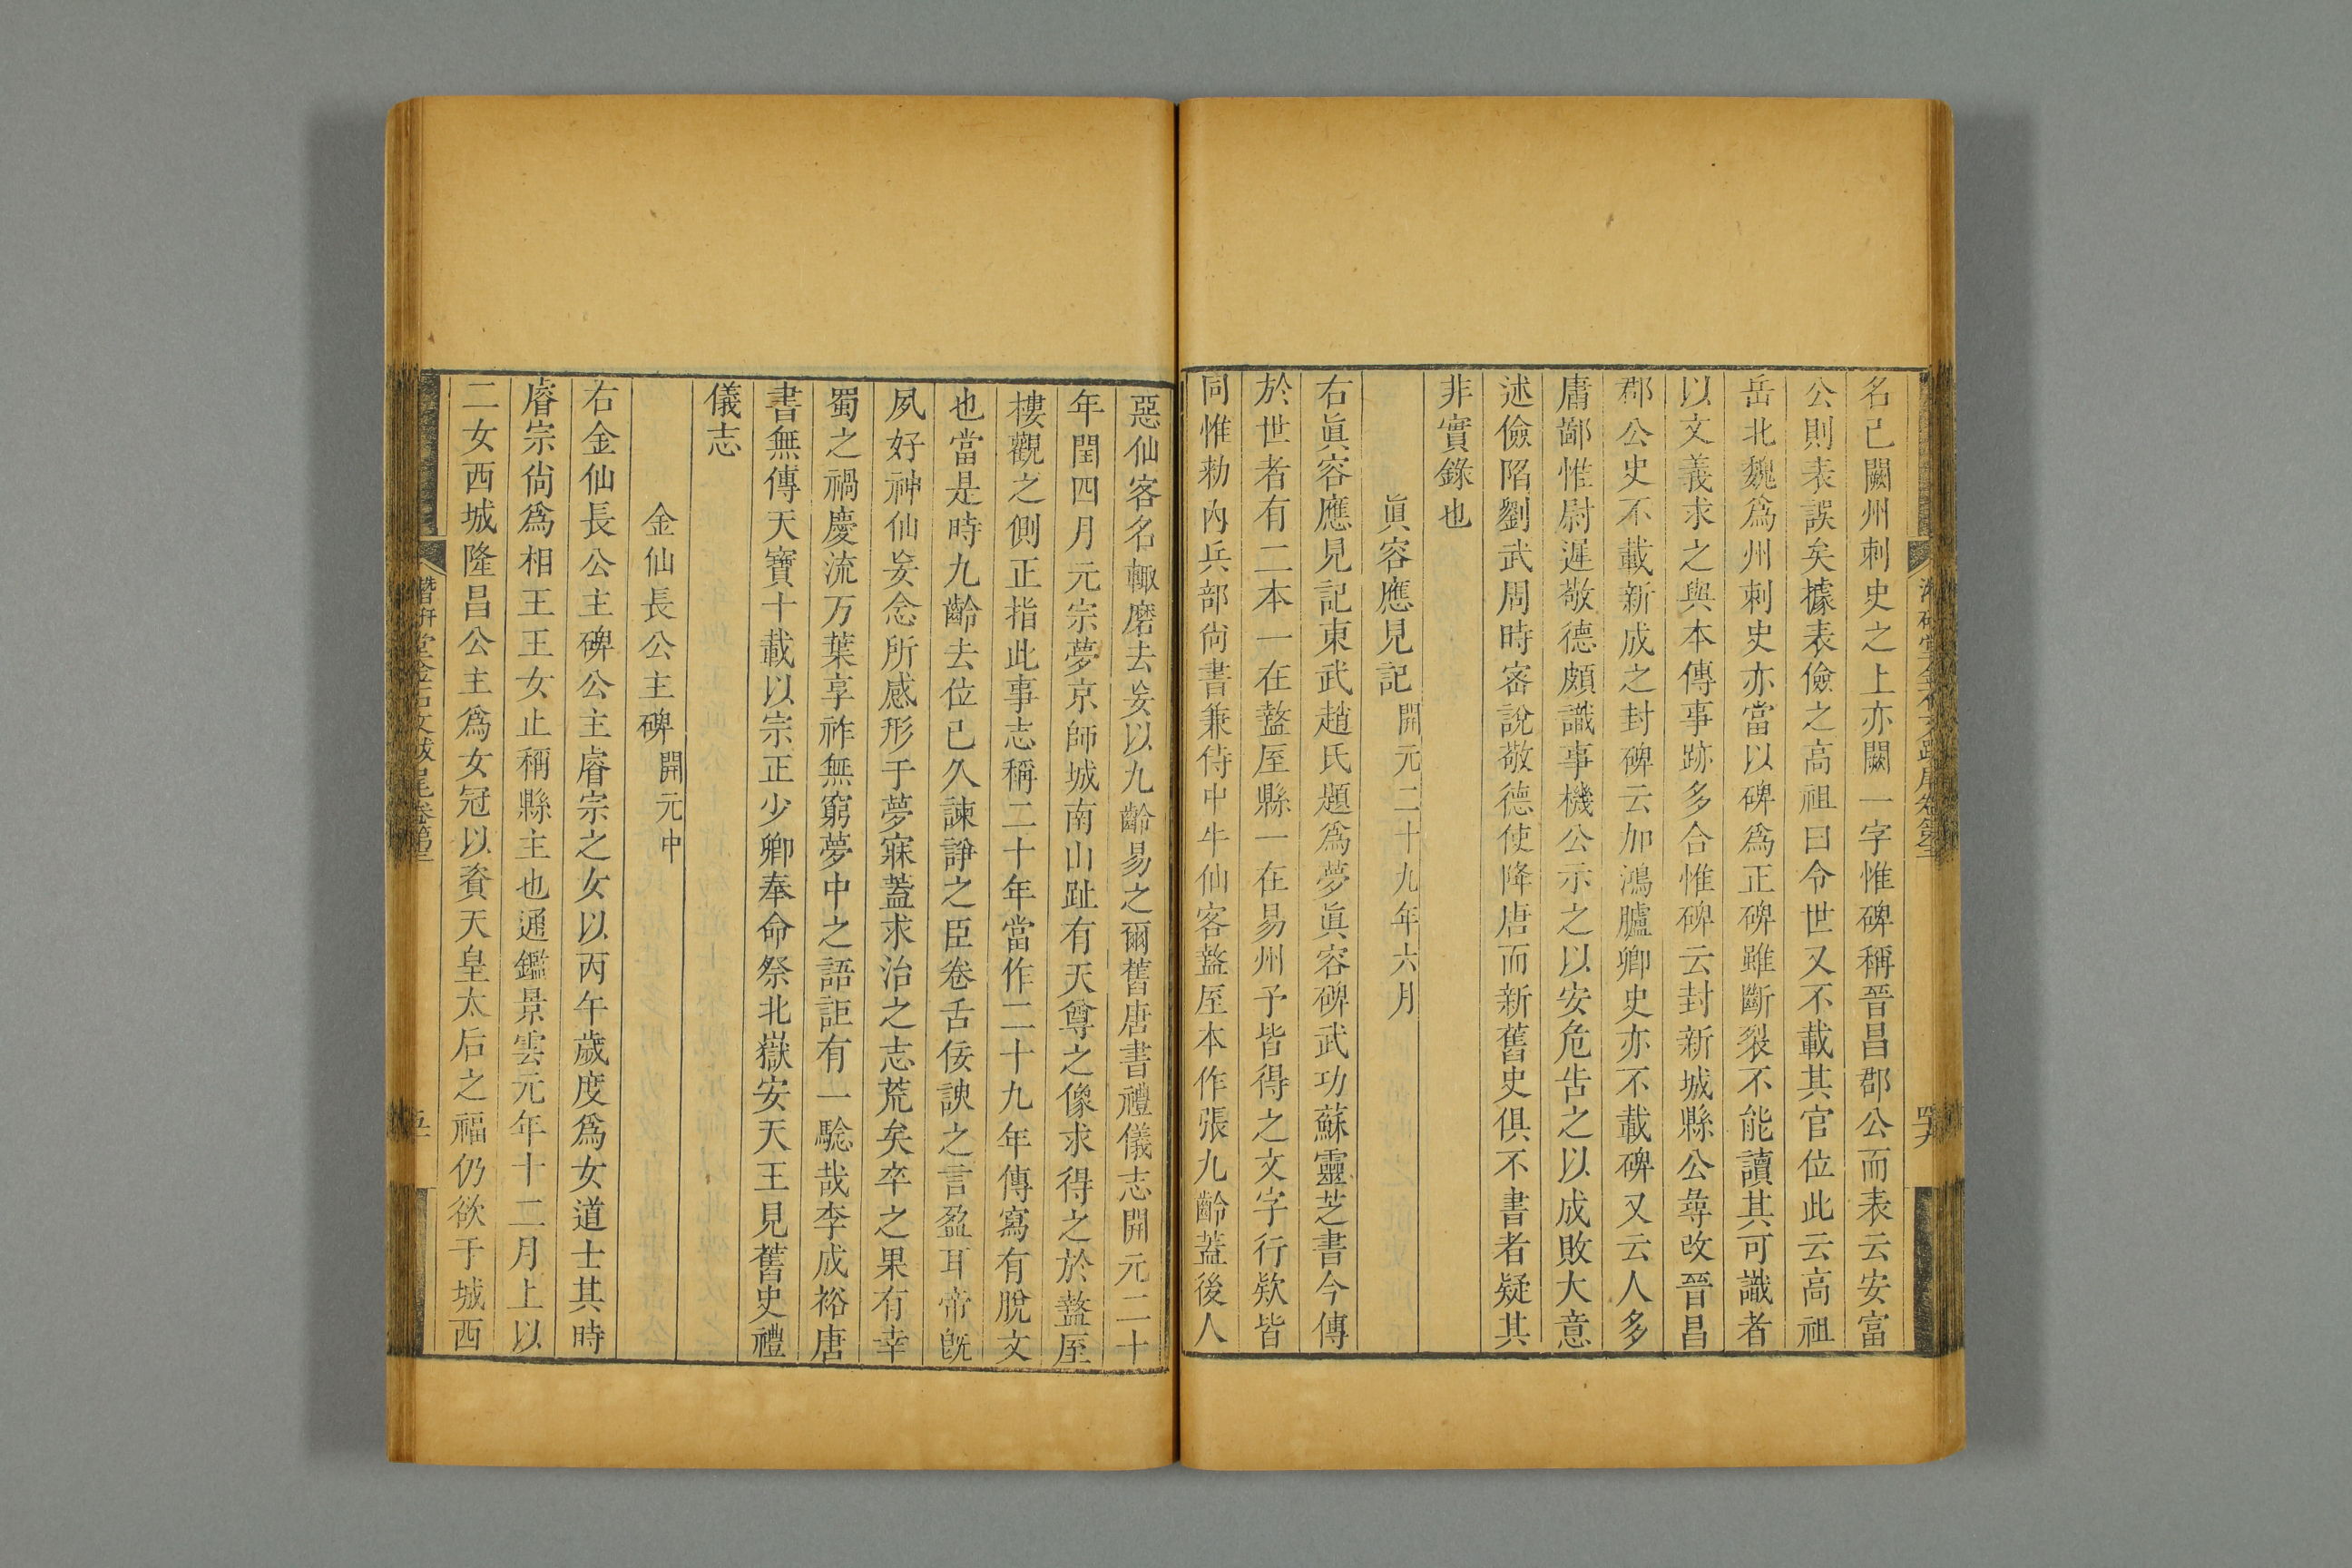 名已闕州刺史之上亦闕一字惟碑稱晉昌郡公而表云安富
公則表誤矣據表儉之高祖曰令世又不載其官位此云高祖
岳北魏爲州刺史亦當以碑爲正碑雖斷裂不能讀其可識者
以文義求之與本傳事跡多合惟碑云封新城縣公尋改晉昌
郡公史不載新成之封碑云加鴻臚卿史亦不載碑又云人多
庸鄙惟尉遲敬德頗識事機公示之以安危告之以成敗大意
述儉陷劉武周時密說敬德使降唐而新舊史俱不書者疑其
非實錄也
眞容應見記開元二十九年六月
右眞容應見記東武趙氏題爲夢眞容碑武功蘇靈芝書今傳
於世者有二本一在盩厔縣一在易州予皆得之文字行欵皆
同惟勅內兵部尙書兼侍中牛仙客盩厔本作張九齡蓋後人
惡仙客名輙磨去妄以九齡易之爾舊唐書禮儀志開元二十
年閏四月元宗夢京師城南山趾有天尊之像求得之於盩厔
樓觀之側正指此事志稱二十年當作二十九年傳寫有脫文
也當是時九齡去位已久諫諍之臣卷舌佞諛之言盈耳帝旣
夙好神仙妄念所感形于夢寐蓋求治之志荒矣卒之果有幸
蜀之禍慶流万葉享祚無窮夢中之語詎有一騐哉李成裕唐
書無傳天寶十載以宗正少卿奉命祭北嶽安天王見舊史禮
儀志
金仙長公主碑開元中
右金仙長公主碑公主睿宗之女以丙午歲度爲女道士其時
睿宗尙爲相王王女止稱縣主也通鑑景雲元年十二月上以
二女西城隆昌公主爲女冠以資天皇太后之福仍欲于城西
潛研堂金石文跋尾卷第